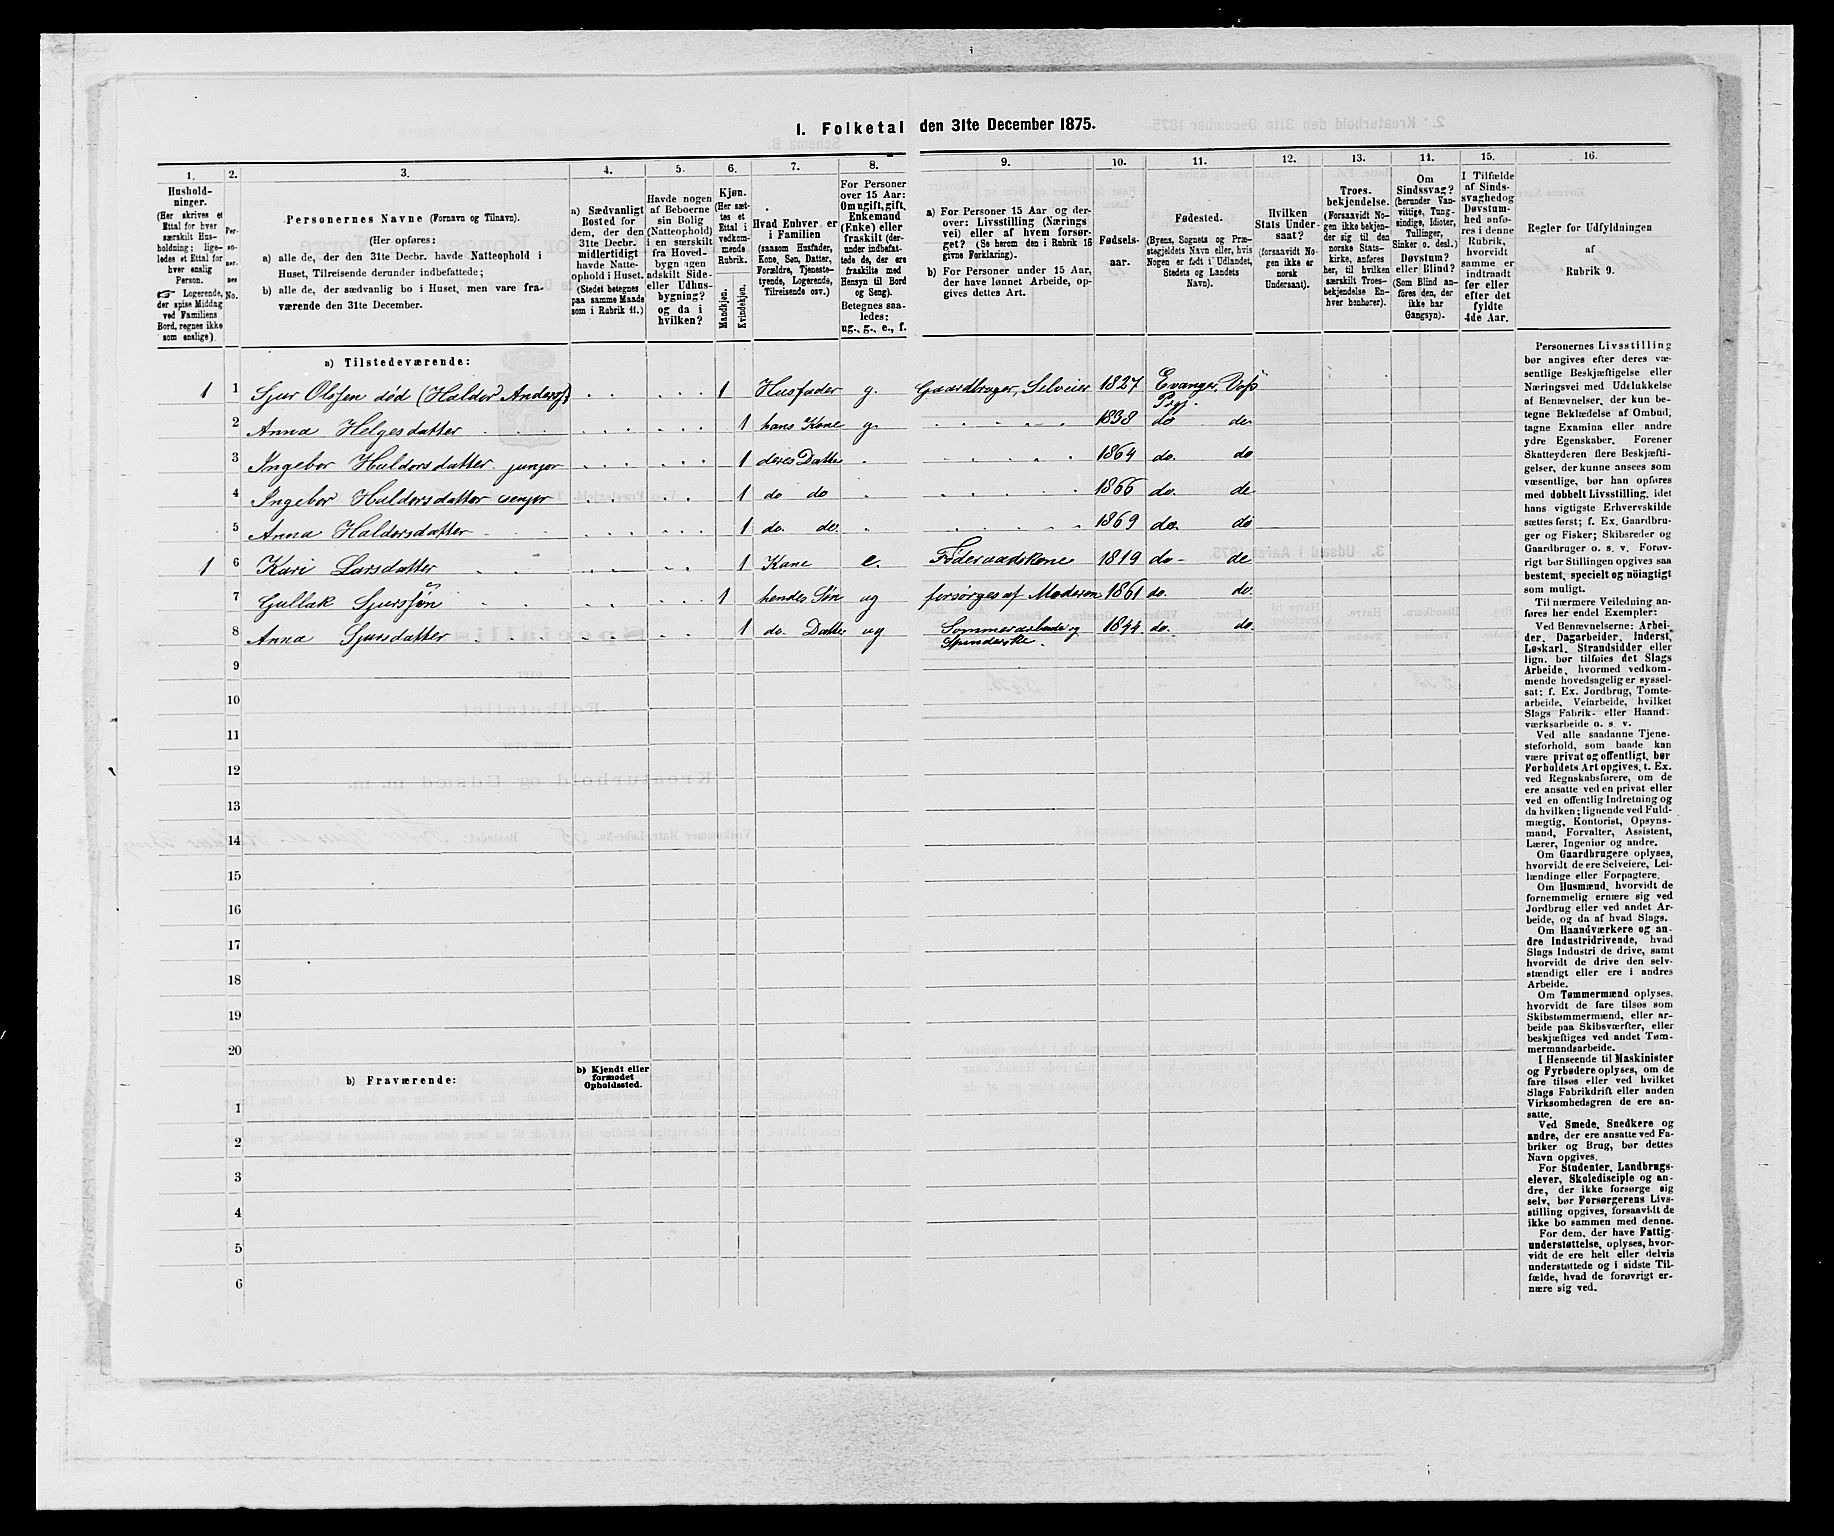 1. Folketal den 31te December 1875.
1. 2. 3. 4. 5. 6. 7. 8. 9. 10. 11. 12. 13. 14. 15. 16.
Hushold-
ninger.
(Her skrives et
Ettal for hver
særskilt Hus-
holdning; lige-
ledes et Ettal for
hver enslig
Person.
☞ Logerende,
der spise Middag
ved Familiens
Bord, regnes ikke
som enslige).
Per-
so-
ner-
nes
No.
Personernes Navne (Fornavn og Tilnavn).
(Her opføres:
a) alle de, der den 31te Decbr. havde Natteophold i
Huset, Tilreisende derunder indbefattede;
b) alle de, der sædvanlig bo i Huset, men vare fra-
værende den 31te December.
a) Sædvanligt
Bosted for
dem, der den
31te Decbr.
midlertidigt
havde Natte-
ophold i Huset.
(Stedet betegnes
paa samme Maade
som i Rubrik 11.)
Havde nogen
af Beboerne
sin Bolig
(Natteophold)
i en særskilt
fra Hoved-
bygningen
adskilt Side-
eller Udhus-
bygning?
og da i
hvilken?
Kjøn.
(Her sæt-
tes et
Ettal i
vedkom-
mende
Rubrik.
Mandkjøn.
Kvindekjøn.
Hvad Enhver er
i Familien
(saasom Husfader,
Kone, Søn, Datter,
Forældre, Tjeneste-
tyende, Logerende,
Tilreisende osv.)
For Personer
over 15 Aar:
Om ugift, gift,
Enkemand
(Enke) eller
fraskilt (der-
under indbefat-
tede de, der ere
fraskilte med
Hensyn til Bord
og Seng).
Betegnes saa-
ledes:
ug., g., e., f.
a) For Personer 15 Aar og der-
over: Livsstilling (Nærings-
vei) eller af hvem forsør-
get? (Se herom den i Rubrik 16
givne Forklaring).
b) For Personer under 15 Aar,
der have lønnet Arbeide, op-
gives dettes Art.
Fødsels-
aar.
Fødested.
(Byens, Sognets og Præ-
stegjeldets Navn eller, hvis
Nogen er født i Udlandet,
Stedets og Landets
Navn).
Hvilken
Stats Under-
saat?
(forsaavidt No-
gen ikke er
norsk
Undersaat).
Troes-
bekjendelse.
(Forsaavidt No-
gen ikke bekjen-
der sig til den
norske Stats-
kirke, anføres
her, til hvilken
særskilt Troes-
bekjendelse En-
hver henhører).
Om
Sindssvag?
(herunder Van-
vittige, Tung-
sindige, Idioter,
Tullinger,
Sinker o. desl.)
Døvstum?
eller Blind?
(Som Blind an-
føres den, der
ikke har
Gangsyn).
I Tilfælde
af Sinds-
svaghed og
Døvstum-
hed anfø-
res i denne
Rubrik,
hvorvidt
samme er
indtraadt
før eller
efter det
fyldte
4de Aar.
Regler for Udfyldningen
af
Rubrik 9.
a) Tilstedeværende:
1 1 Sjur Olssen død (Haldor Anderss) 1 Husfader g. Gaardbruger, Selveier 1827 Evanger, Voss
Prgj.
2 Anna Helgesdatter 1 hans Kone g. 1838 do do
3 Ingebor Haldorsdatter junjor 1 deres Datter 1864 do. do
4 Ingebor Haldorsdatter senjor 1 do do 1866 do. do
5 Anna Haldorsdatter 1 do. do. 1869 do. do
1 6 Kari Larsdatter 1 Kone e. Føderaadskone 1819 do do
7 Gullak Sjurssøn 1 hendes Søn ug forsørges af Moderen 1861 do. do.
8 Anna Sjursdatter 1 do. Datter ug Sommerarbeide og 1844 do. do.
9
10
11
12
13
14
15
16
17
18
19
20
b) Fraværende:
b) Kjendt eller
formodet
Opholdssted.
1
2
3
4
5
6
Personernes Livsstilling
bør angives efter deres væ-
sentlige Beskjæftigelse eller
Næringsvei med Udelukkelse
af Benævnelser, der kun be-
tegne Beklædelse af Ombud,
tagne Examina eller andre
ydre Egenskaber. Forener
Skatteyderen flere Beskjæfti-
gelser, der kunne ansees som
væsentlige, bør han opføres
med dobbelt Livsstilling, idet
hans vigtigste Erhvervskilde
sættes først; f. Ex. Gaardbru-
ger og Fisker; Skibsreder og
Gaardbruger o. s. v. Forøv-
rigt bør Stillingen opgives saa
bestemt, specielt og nöiagtigt
som muligt.
Til nærmere Veiledning an-
føres her endel Exempler:
Ved Benævnelserne: Arbei-
der, Dagarbeider, Inderst,
Løskarl, Strandsidder eller
lign. bør tilføies det Slags
Arbeide, hvormed vedkom-
mende hovedsagelig er syssel-
sat; f. Ex. Jordbrug, Tomte-
arbeide, Veiarbeide, hvilket
Slags Fabrik- eller Haand-
værksarbeide o. s. v.
Ved alle saadanne Tjene-
steforhold, som baade kan
være privat og offentligt, bør
Forholdets Art opgives, t. Ex.
ved Regnskabsførere, om de
ere ansatte ved en privat eller
ved en offentlig Indretning og
da hvilken; lignende ved Fuld-
mægtig, Kontorist, Opsyns-
mand, Forvalter, Assistent,
Lærer, Ingeniør og andre.
Om Gaardbrugere oplyses,
hvorvidt de ere Selveiere, Lei-
lændinge eller Forpagtere.
Om Husmænd, hvorvidt de
fornemmelig ernære sig ved
Jordbrug eller ved andet Ar-
beide, og da af hvad Slags.
Om Haandværkere og an-
dre Industridrivende, hvad
Slags Industri de drive, samt
hvorvidt de drive den selv-
stændigt eller ere i andres
Arbeide.
Om Tømmermænd oplyses,
hvorvidt de fare tilsøs som
Skibstømmermænd, eller ar-
beide paa Skibsværfter, eller
beskjæftiges ved andet Tøm-
mermandsarbeide.
I Henseende til Maskinister
og Fyrbødere oplyses, om de
fare tilsøs eller ved hvilket
Slags Fabrikdrift eller anden
Virksomhedsgren de ere an-
satte.
Ved Smede, Snedkere og
andre, der ere ansatte ved Fa-
briker og Brug, bør dettes
Navn opgives.
For Studenter, Landbrugs-
elever, Skoledisciple og an-
dre, der ikke forsørge sig
selv, bør Forsørgerens Livs-
stilling opgives, forsaavidt de
ikke bo sammen med denne.
For dem, der have Fattig-
understøttelse, oplyses, hvor-
vidt de ere helt eller delvis
understøttede og i sidste Til-
fælde, hvad de forøvrigt er-
nære sig ved.